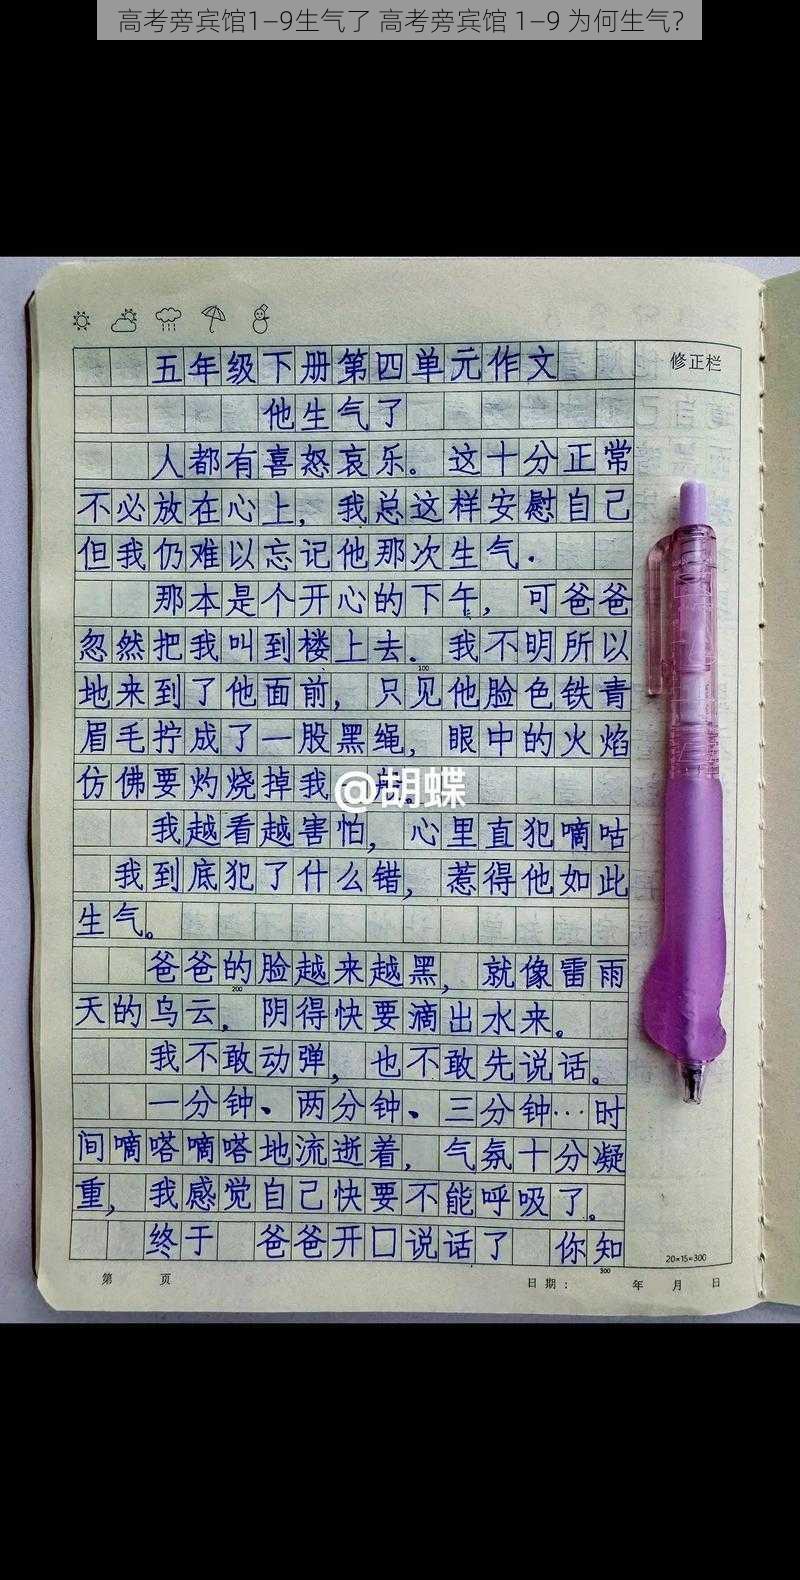 高考旁宾馆1—9生气了 高考旁宾馆 1—9 为何生气?
五年级下册第四单元作文
修正栏
他生气了
人都有喜怒哀乐。这十分正常
不必放在心上,我总这样安慰自己
但我仍难以忘记他那次生气.
那本是个开心的下午,可爸爸
忽然把我叫到楼上去.我不明所以
100
地来到了他面前,只见他脸色铁青
眉毛拧成了一股黑绳,眼中的火焰
仿佛要灼烧掉我一
@胡蝶
我越看越害怕,心里直犯嘀咕
我到底犯了什么错,惹得他如此
生气。
爸爸的脸越来越黑,就像雷雨
200
天的乌云,阴得快要滴出水来。
我不敢动弹,也不敢先说话。
一分钟、两分钟、三分钟…时
间嘀嗒嘀嗒地流逝着,气氛十分凝
重,我感觉自己快要不能呼吸了。
终于 爸爸开口说话了 你知
20×15=300
300
第 页
日期: 年 月 日